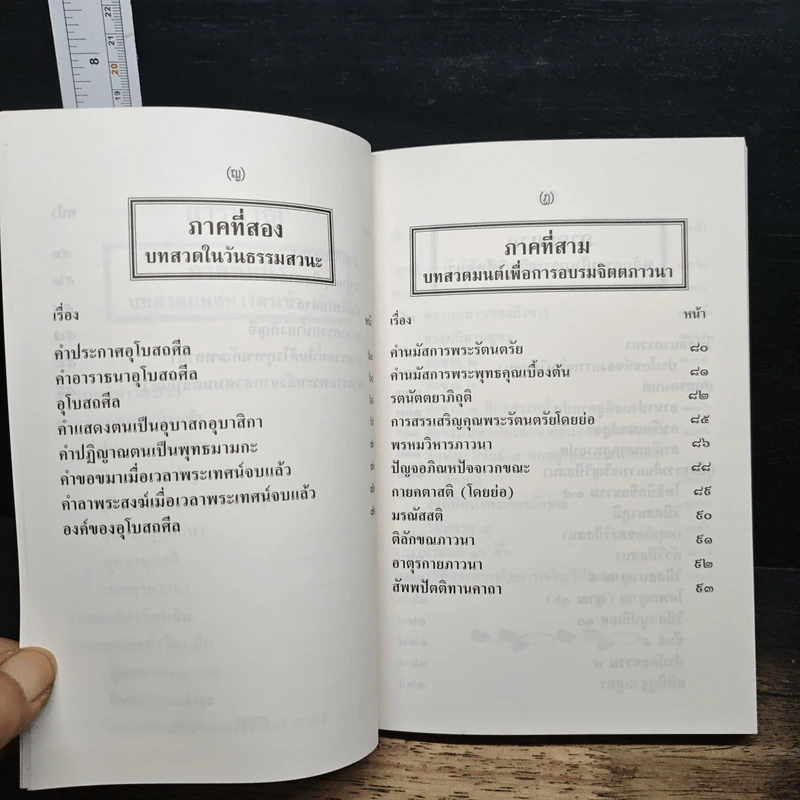 (ญ)
ภาคที่สอง
บทสวดในวันธรรมสวนะ
เรื่อง
คำประกาศอุโบสถศีล
คำอาราธนาอุโบสถศีล
อุโบสถศีล
คำแสดงตนเป็นอุบาสกอุบาสิกา
คำปฏิญาณตนเป็นพุทธมามกะ
คำขอขมาเมื่อเวลาพระเทศน์จบแล้ว
คำลาพระสงฆ์เมื่อเวลาพระเทศน์จบแล้ว
องค์ของอุโบสถศีล
(ฎ)
ภาคที่สาม
บทสวดมนต์เพื่อการอบรมจิตตภาวนา
เรื่อง หน้า
คำนมัสการพระรัตนตรัย ๘๐
คำนมัสการพระพุทธคุณเบื้องต้น ๘๑
รตนัตตยาภิถุติ ๘๒
การสรรเสริญคุณพระรัตนตรัยโดยย่อ ๘๕
พรหมวิหารภาวนา ๘๖
ปัญจอภิณหปัจจเวกขณะ ๘๘
กายคตาสติ (โดยย่อ) ๘๙
มรณัสสติ ๙๐
ติลักขณภาวนา ๙๑
อาตุรกายภาวนา ๙๒
สัพพปัตติทานคาถา ๙๓
8
22
21
20
19